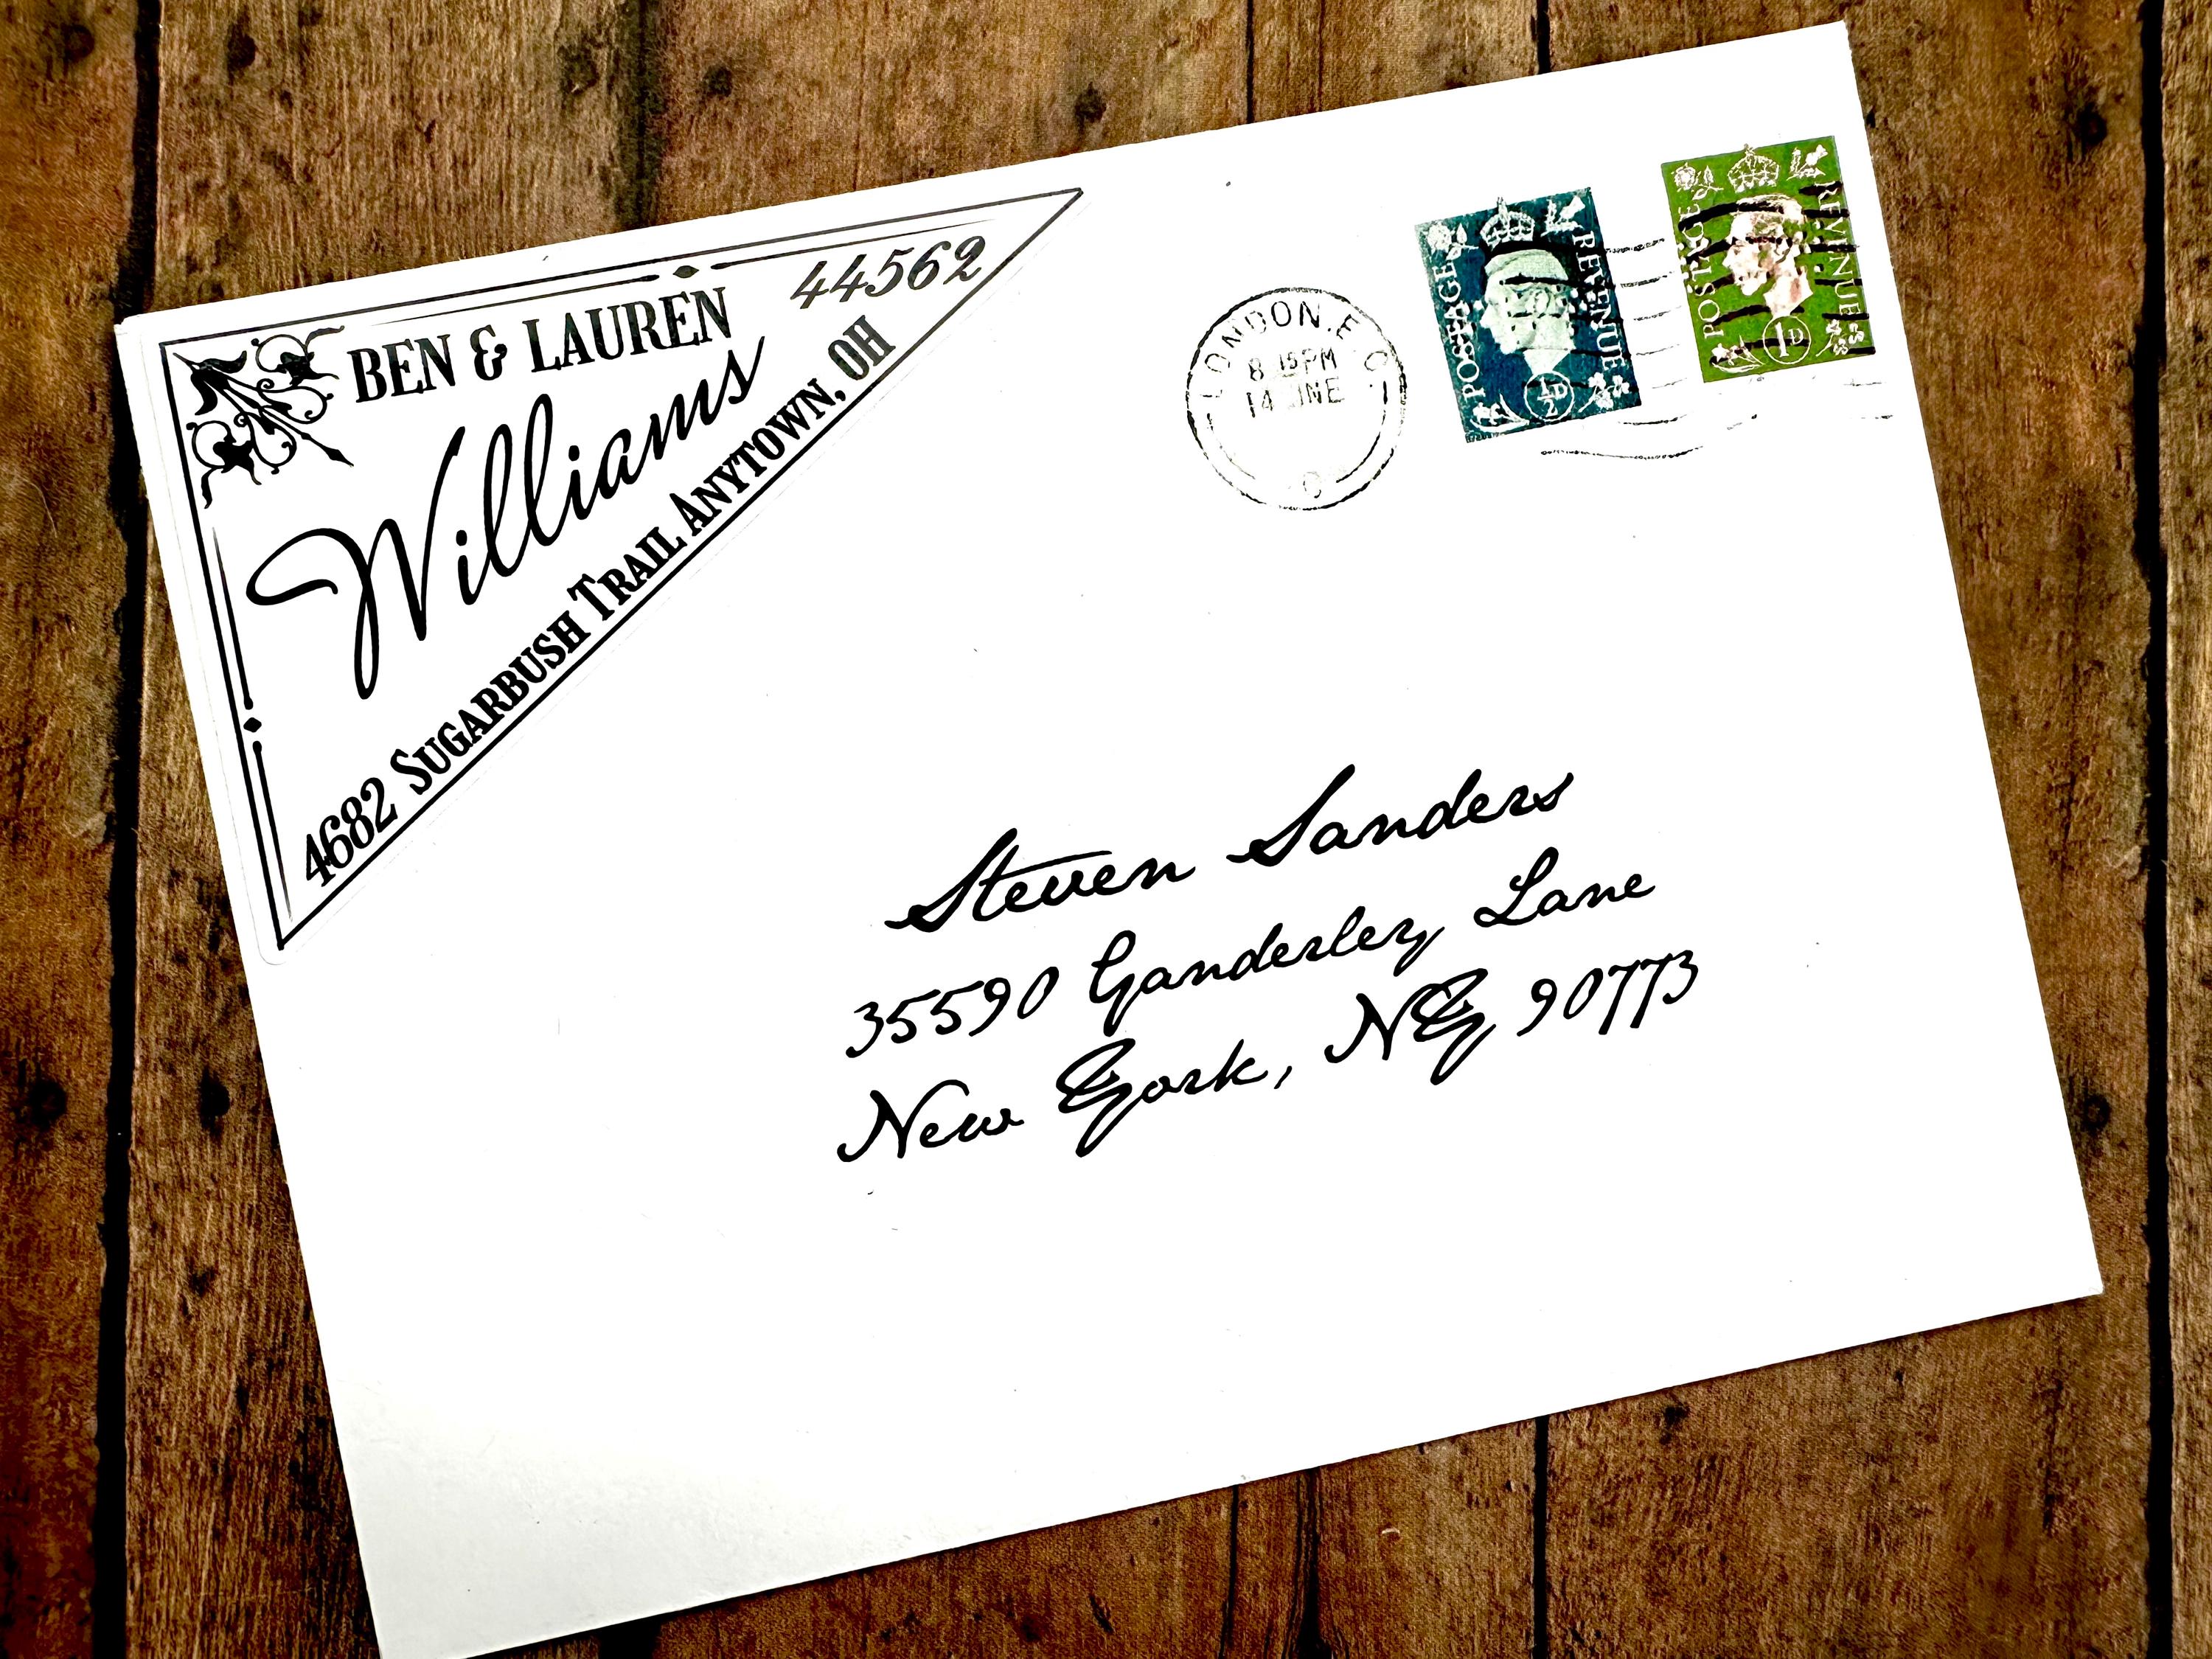 BEN & LAUREN
Williams
4682 SUGARBUSH TRAIL ANYTOWN, OH
44562
LONDON. E. C.
8 15PM
14 JNE
C
POSTAGE REVENUE
½D
POSTAGE REVENUE
1D
Steven Sanders
35590 Ganderley Lane
New York, NY 90773